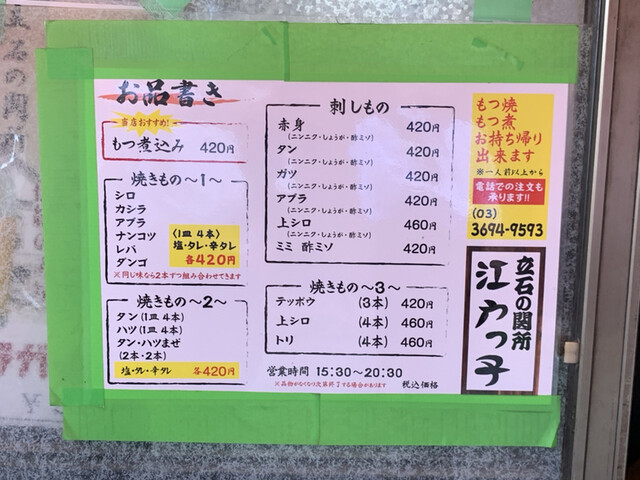 お品書き
当店おすすめ!
もつ煮込み 420円
焼きもの～1～
シロ
カシラ
アブラ
ナンコツ
レバ
ダンゴ
(1皿 4本)
塩・タレ・辛タレ
各420円
※同じ味なら2本ずつ組み合わせできます
焼きもの～2～
タン(1皿4本)
ハツ(1皿4本)
タン・ハツまぜ
(2本・2本)
塩・タレ・辛タレ 各420円
刺しもの
赤身 420円
(ニンニク・しょうが・酢ミソ)
タン 420円
(ニンニク・しょうが・酢ミソ)
ガツ 420円
(ニンニク・しょうが・酢ミソ)
アブラ 420円
(ニンニク・しょうが・酢ミソ)
上シロ 460円
(ニンニク・しょうが・酢ミソ)
ミミ 酢ミソ 420円
焼きもの～3～
テッポウ (3本) 420円
上シロ (4本) 460円
トリ (4本) 460円
営業時間 15:30～20:30
※品物がなくなり次第終了する場合があります 税込価格
もつ焼
もつ煮
お持ち帰り
出来ます
※一人前以上から
電話での注文も
承ります!!
(03)
3694-9593
立石の関所
江戸っ子
立石の関